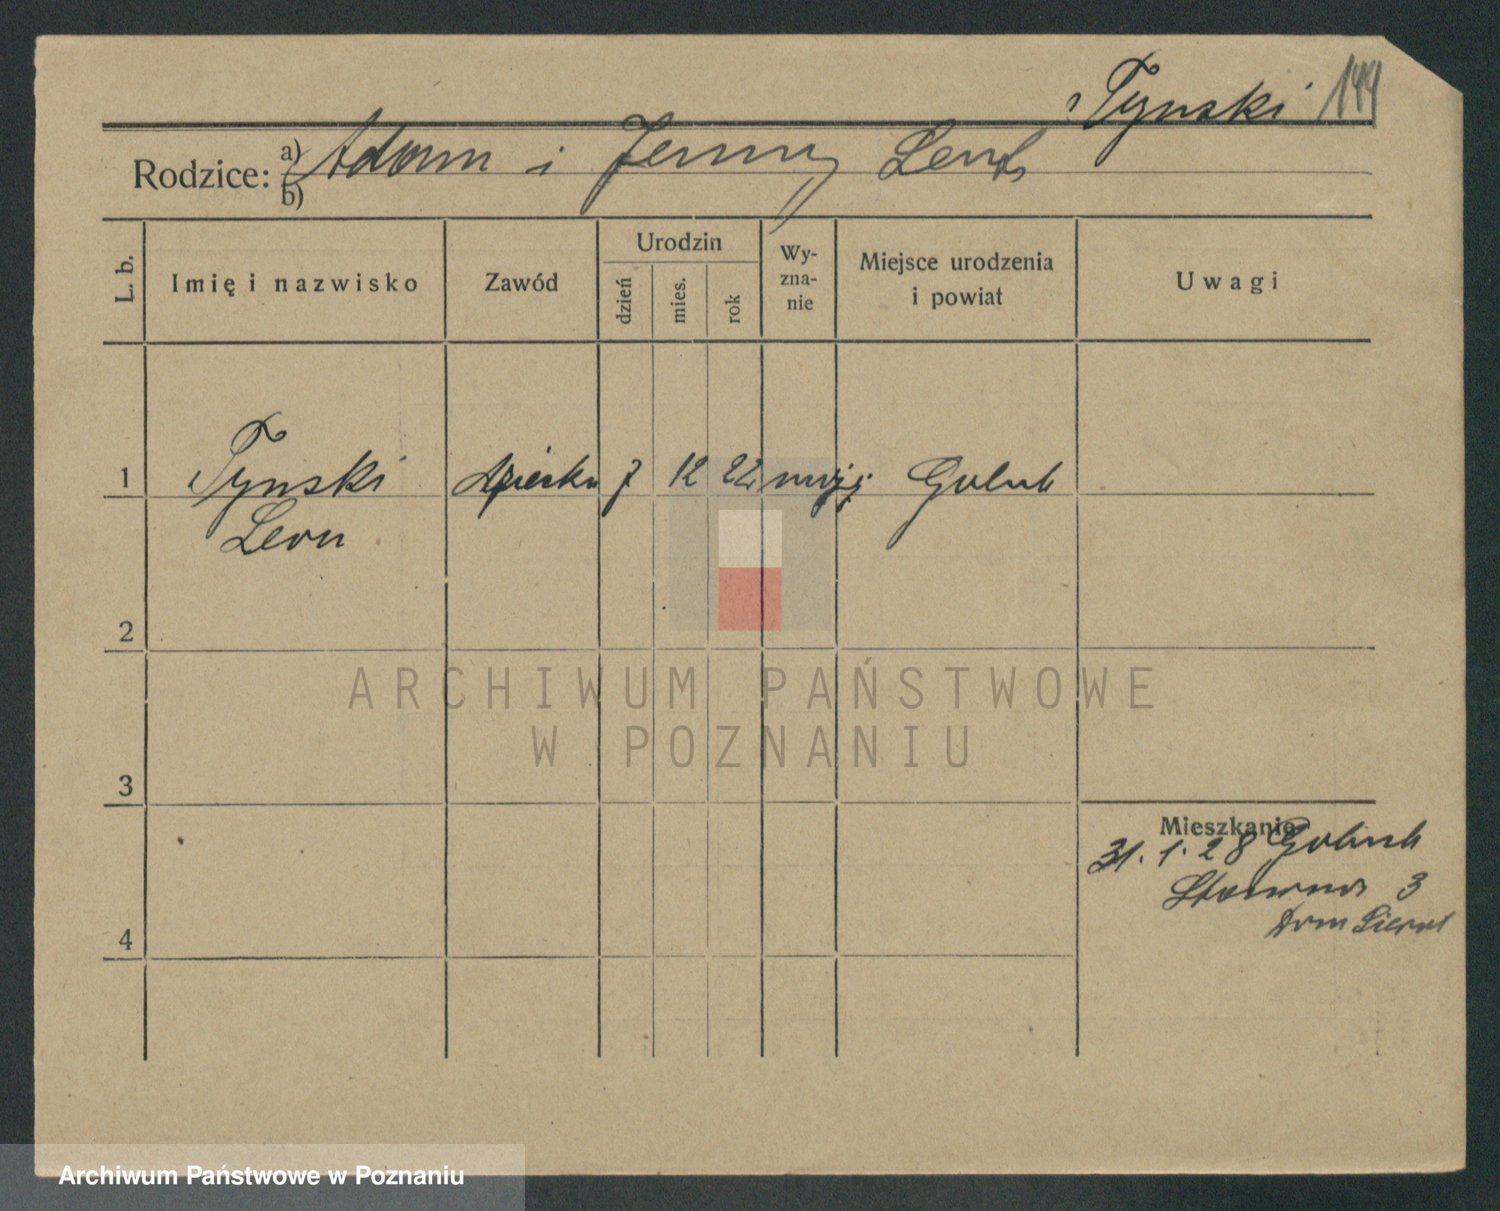 Tynski 144
Rodzice: a) Adam i Jenny Lenk
b)
L. b. Imię i nazwisko Zawód Urodzin dzień mies. rok Wy-zna-nie Miejsce urodzenia i powiat Uwagi
1 Tynski dziecko 7 12 22 mojż. Golub
Leon
2
ARCHIWUM PAŃSTWOWE
W POZNANIU
3
Mieszkanie
31. 1. 28 Golub
3
4 Dom
Archiwum Państwowe w Poznaniu